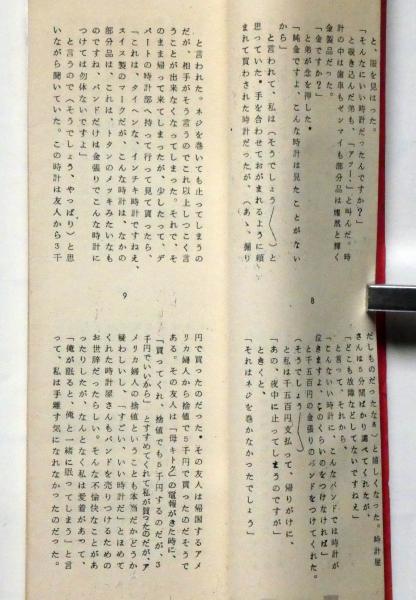 と、眼を見はった。
「そんなにいい時計だったんですか?」
と覗き込んだ弟も、「アッ!」と叫んだ。時
計の中は歯車もゼンマイも部分品は燦然と輝く
金製品だった。
「金ですか?」
と弟が念を押した。
「純金ですよ、こんな時計は見たことがない
から」
と言われて、私は(そうでしょう〳〵)と
思っていた。手を合わせておがまれるように頼
まれて買わされた時計だったが、(あゝ、掘り
8
だしものだったなァと嬉しくなった。時計屋
さんは5分間ばかり調べてくれたが、
「どこも故障などしてないですねえ」
と言って、それから、
「こんないい時計に、こんなバンドでは時計が
泣きますよ、このくらいのをつけなければ」
と千五百円の金張りのバンドをつけてくれた。
(そうでしょう〳〵)
と私は千五百円支払って、帰りがけに、
「あの、夜中に止ってしまうのですが」
ときくと、
「それはネジを巻かなかったでしょう」
と言われた。ネジを巻いても止ってしまうの
だが、相手がそう言うのでこれ以上しつこく言
うことが出来なくなってしまった。それで、そ
のまま帰って来てしまったが、少したって、デ
パートの時計部へ持って行って見て貰ったら、
「これは、タイヘンな、インチキ時計ですねえ、
スイス製のマークだが、こんな時計は、なかの
部分品は、これは、トタンのメッキみたいなも
のですね、バンドだけは金張りでこんな時計に
つけては勿体ないですよ」
と言うので(そうでしょう、やっぱり)と思
いながら聞いていた。この時計は友人から3千
9
円で買ったのだった。その友人は帰国するアメ
リカ婦人から捨値で5千円で買ったのだそうで
ある。その友人は「母キトク」の電報がきた時に、
「買ってくれ、捨値でも5千円するのだが、3
千円でいいから」とすすめてくれて私が買ったのだが、ア
メリカ婦人の捨値ということも本当だかどうか
疑わしいし、「すごい、いい時計だ」とほめて
くれた時計屋さんもバンドを売りつけるための
お世辞だったらしい。そんな不愉快なことがあ
ったりしたが、なんとなく私は愛着があって、
「俺が眠ると、俺と一緒に眠ってしまう」と言
って、私は手離す気になれなかったのだった。